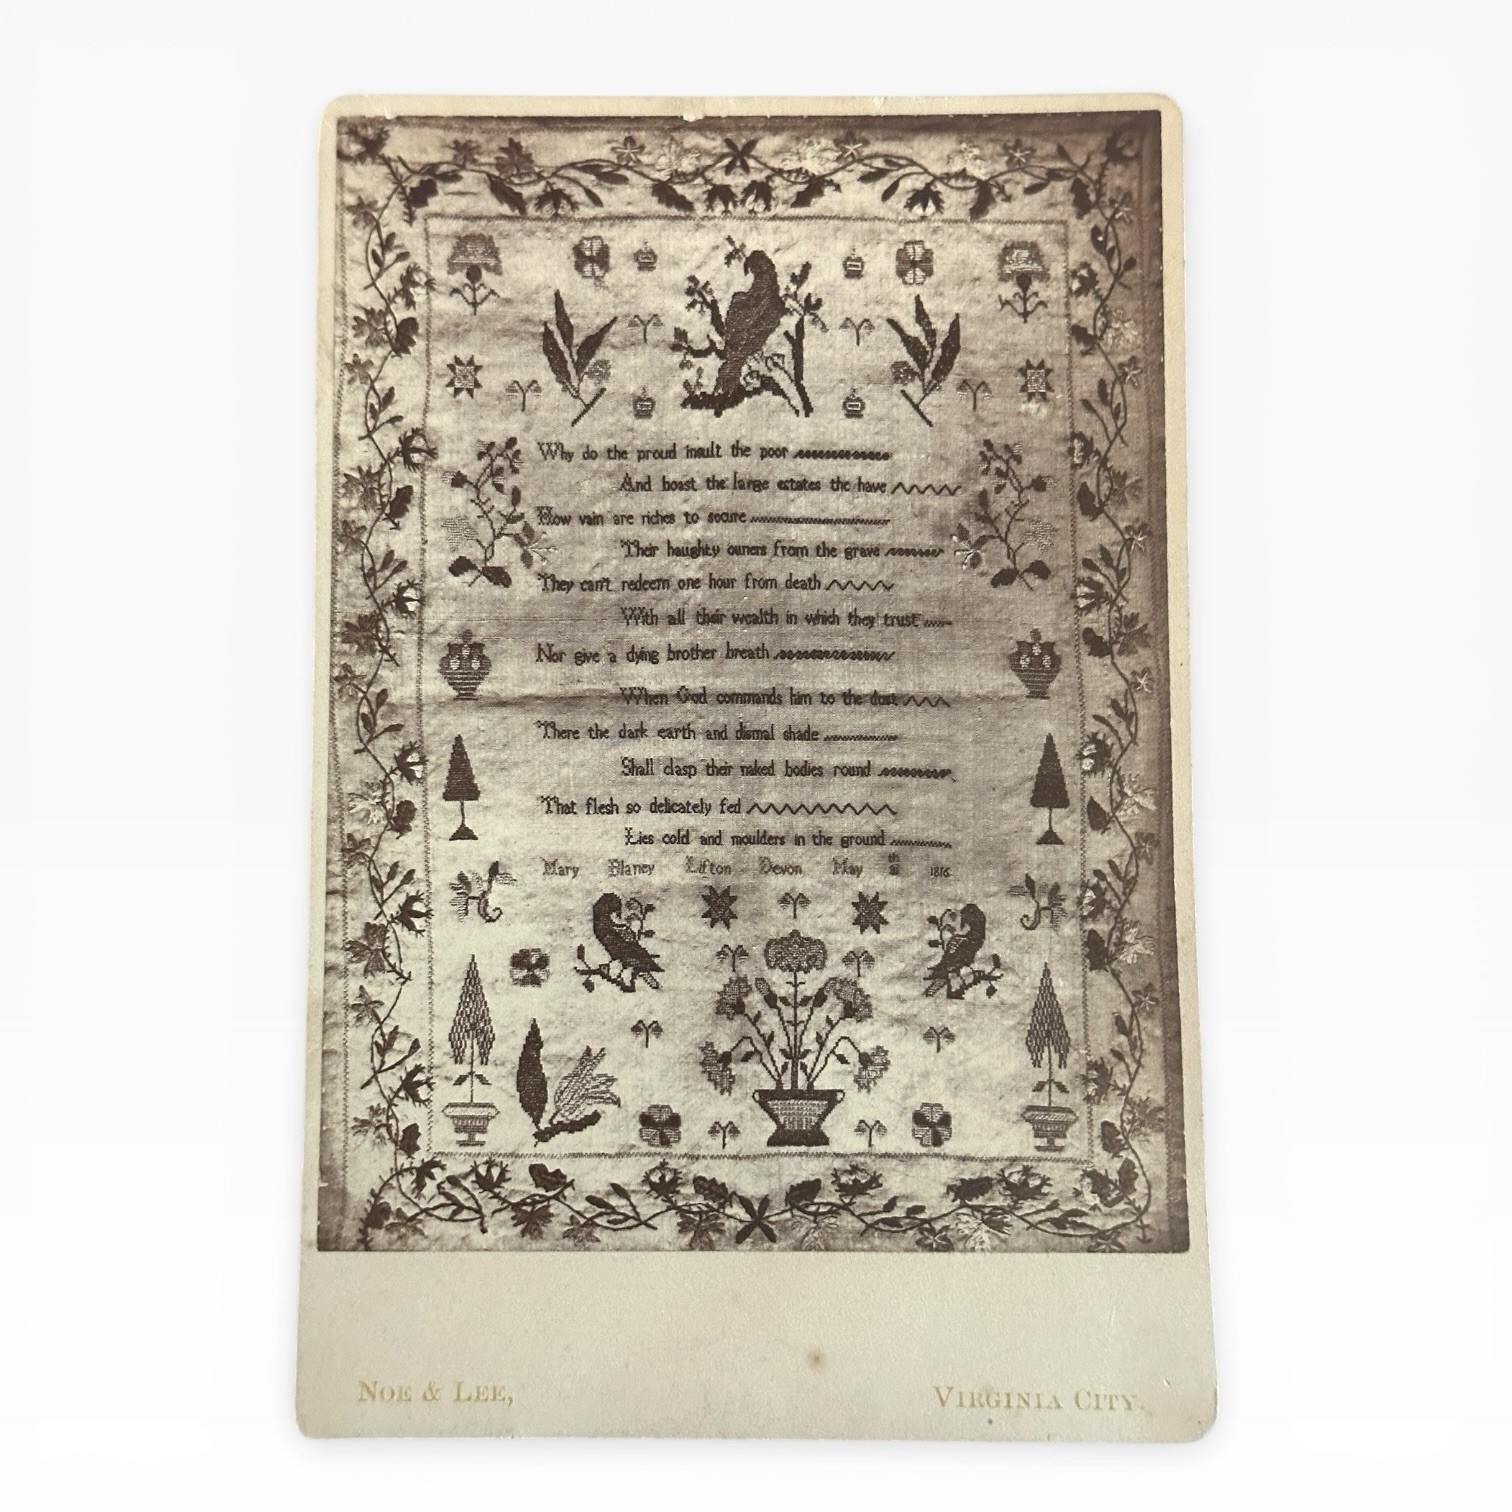 Why do the proud insult the poor
And boast the large estates the have
How vain are riches to secure
Their haughty owners from the grave
They can't redeem one hour from death
With all their wealth in which they trust
Nor give a dying brother breath
When God commands him to the dust
There the dark earth and dismal shade
Shall clasp their naked bodies round
That flesh so delicately fed
Lies cold and moulders in the ground
Mary Blaney Lifton Devon May th 1816
NOE & LEE, VIRGINIA CITY.